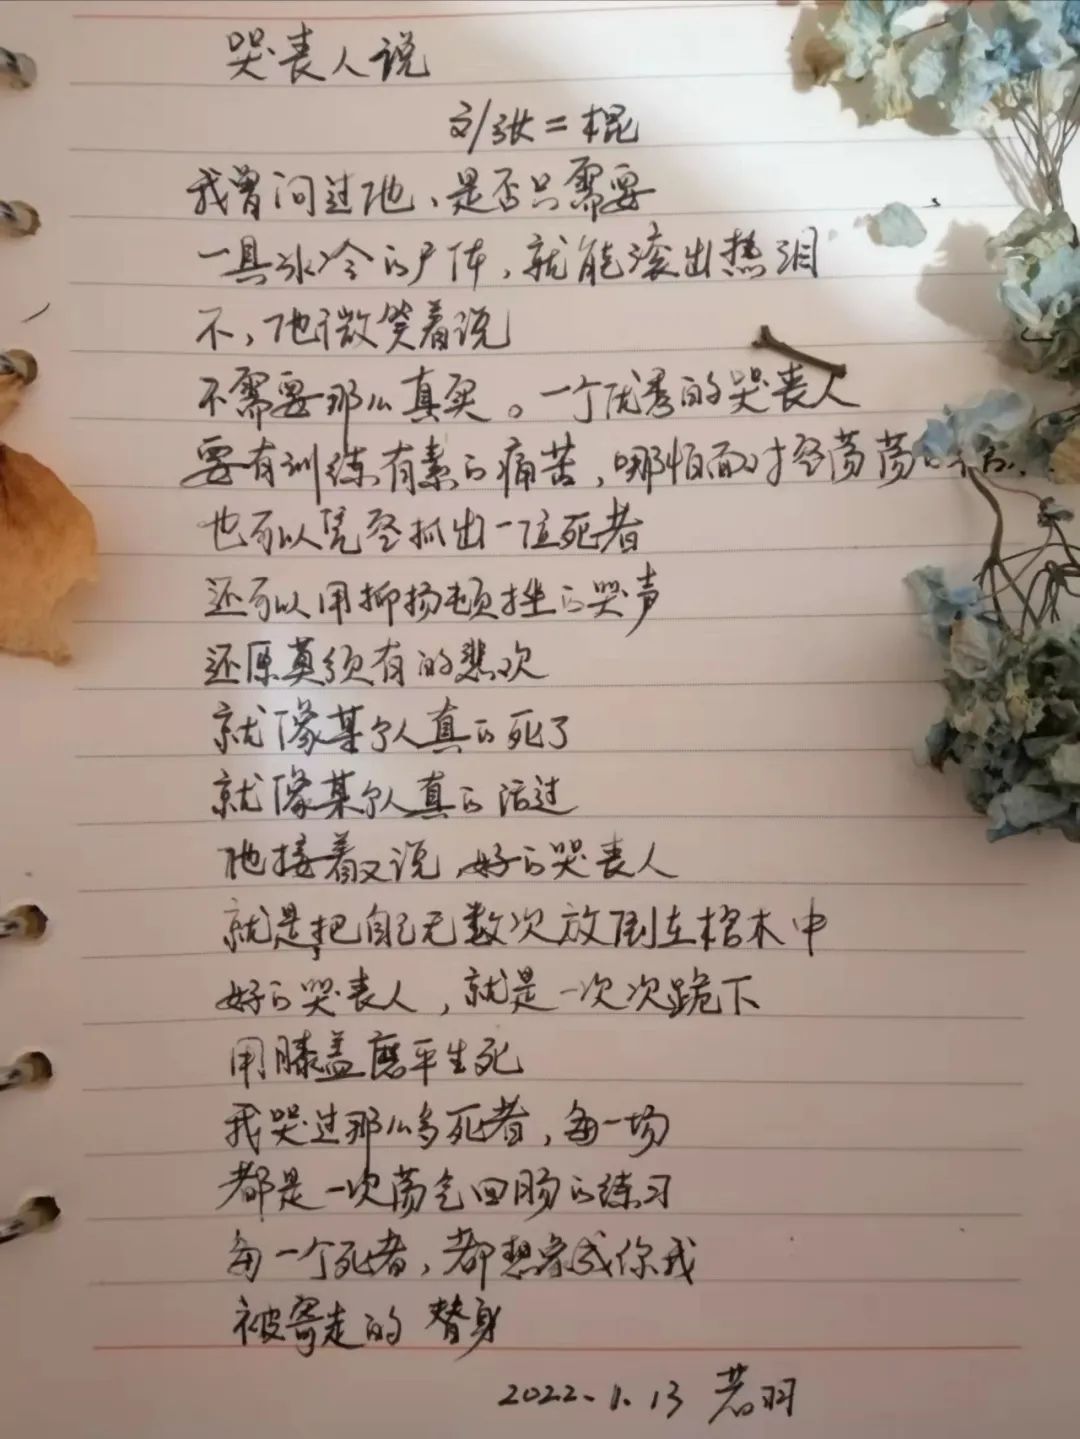 哭丧人说
文/张二棍
我曾问过他、是否只需要
一具冰冷的尸体，就能滚出热泪
不，他微笑着说
不需要那么真实。一个优秀的哭丧人
要有训练有素的痛苦，哪怕面对空荡荡的
也可以凭空抓出一位死者
还可以用抑扬顿挫的哭声
还原莫须有的悲欢
就像某个人真的死了
就像某个人真的活过
他接着又说，好的哭丧人
就是，把自己无数次放倒在棺木中
好的哭丧人，就是一次次跪下
用膝盖磨平生死
我哭过那么多死者，每一场
都是一次荡气回肠的练习
每一个死者，都想象成你我
被寄走的 替身
2022.1.13 若羽